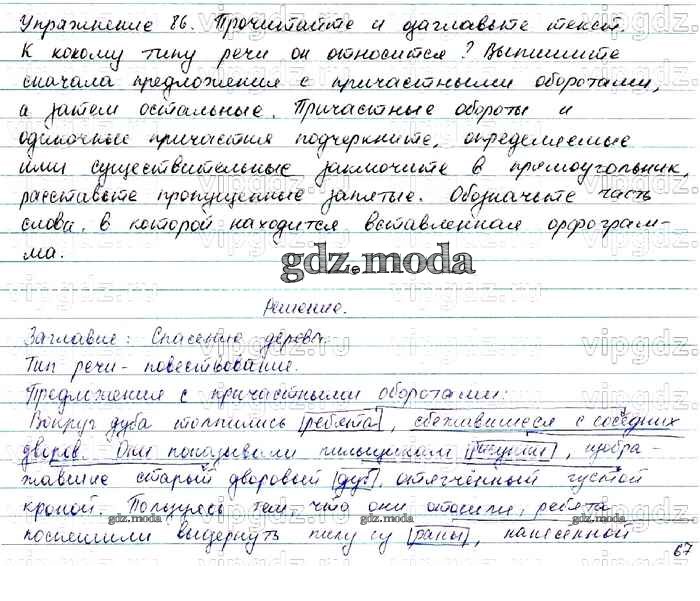 Упражнение 86. Прочитайте и озаглавьте текст.
К какому типу речи он относится? Выпишите
сначала предложения с причастными оборотами,
а затем остальные. Причастные обороты и
одиночные причастия подчеркните, определяемые
ими существительные заключите в прямоугольник,
расставьте пропущенные запятые. Обозначьте часть
слова, в которой находится вставленная орфограм-
ма.
gdz.moda
Решение.
Заглавие: Спасение дерева.
Тип речи - повествование.
Предложения с причастными оборотами:
Вокруг дуба толпились ребята, сбежавшиеся с соседних
дворов. Они показывали пильщикам рисунки, изобра-
жавшие старый дворовый дуб, отягчённый густой
кроной. Пользуясь тем, что они отошли, ребята
gdz.moda gdz.moda gdz.moda
поспешили выдернуть пилу из раны, нанесенной
67
gdz.moda
vipgdz.ru